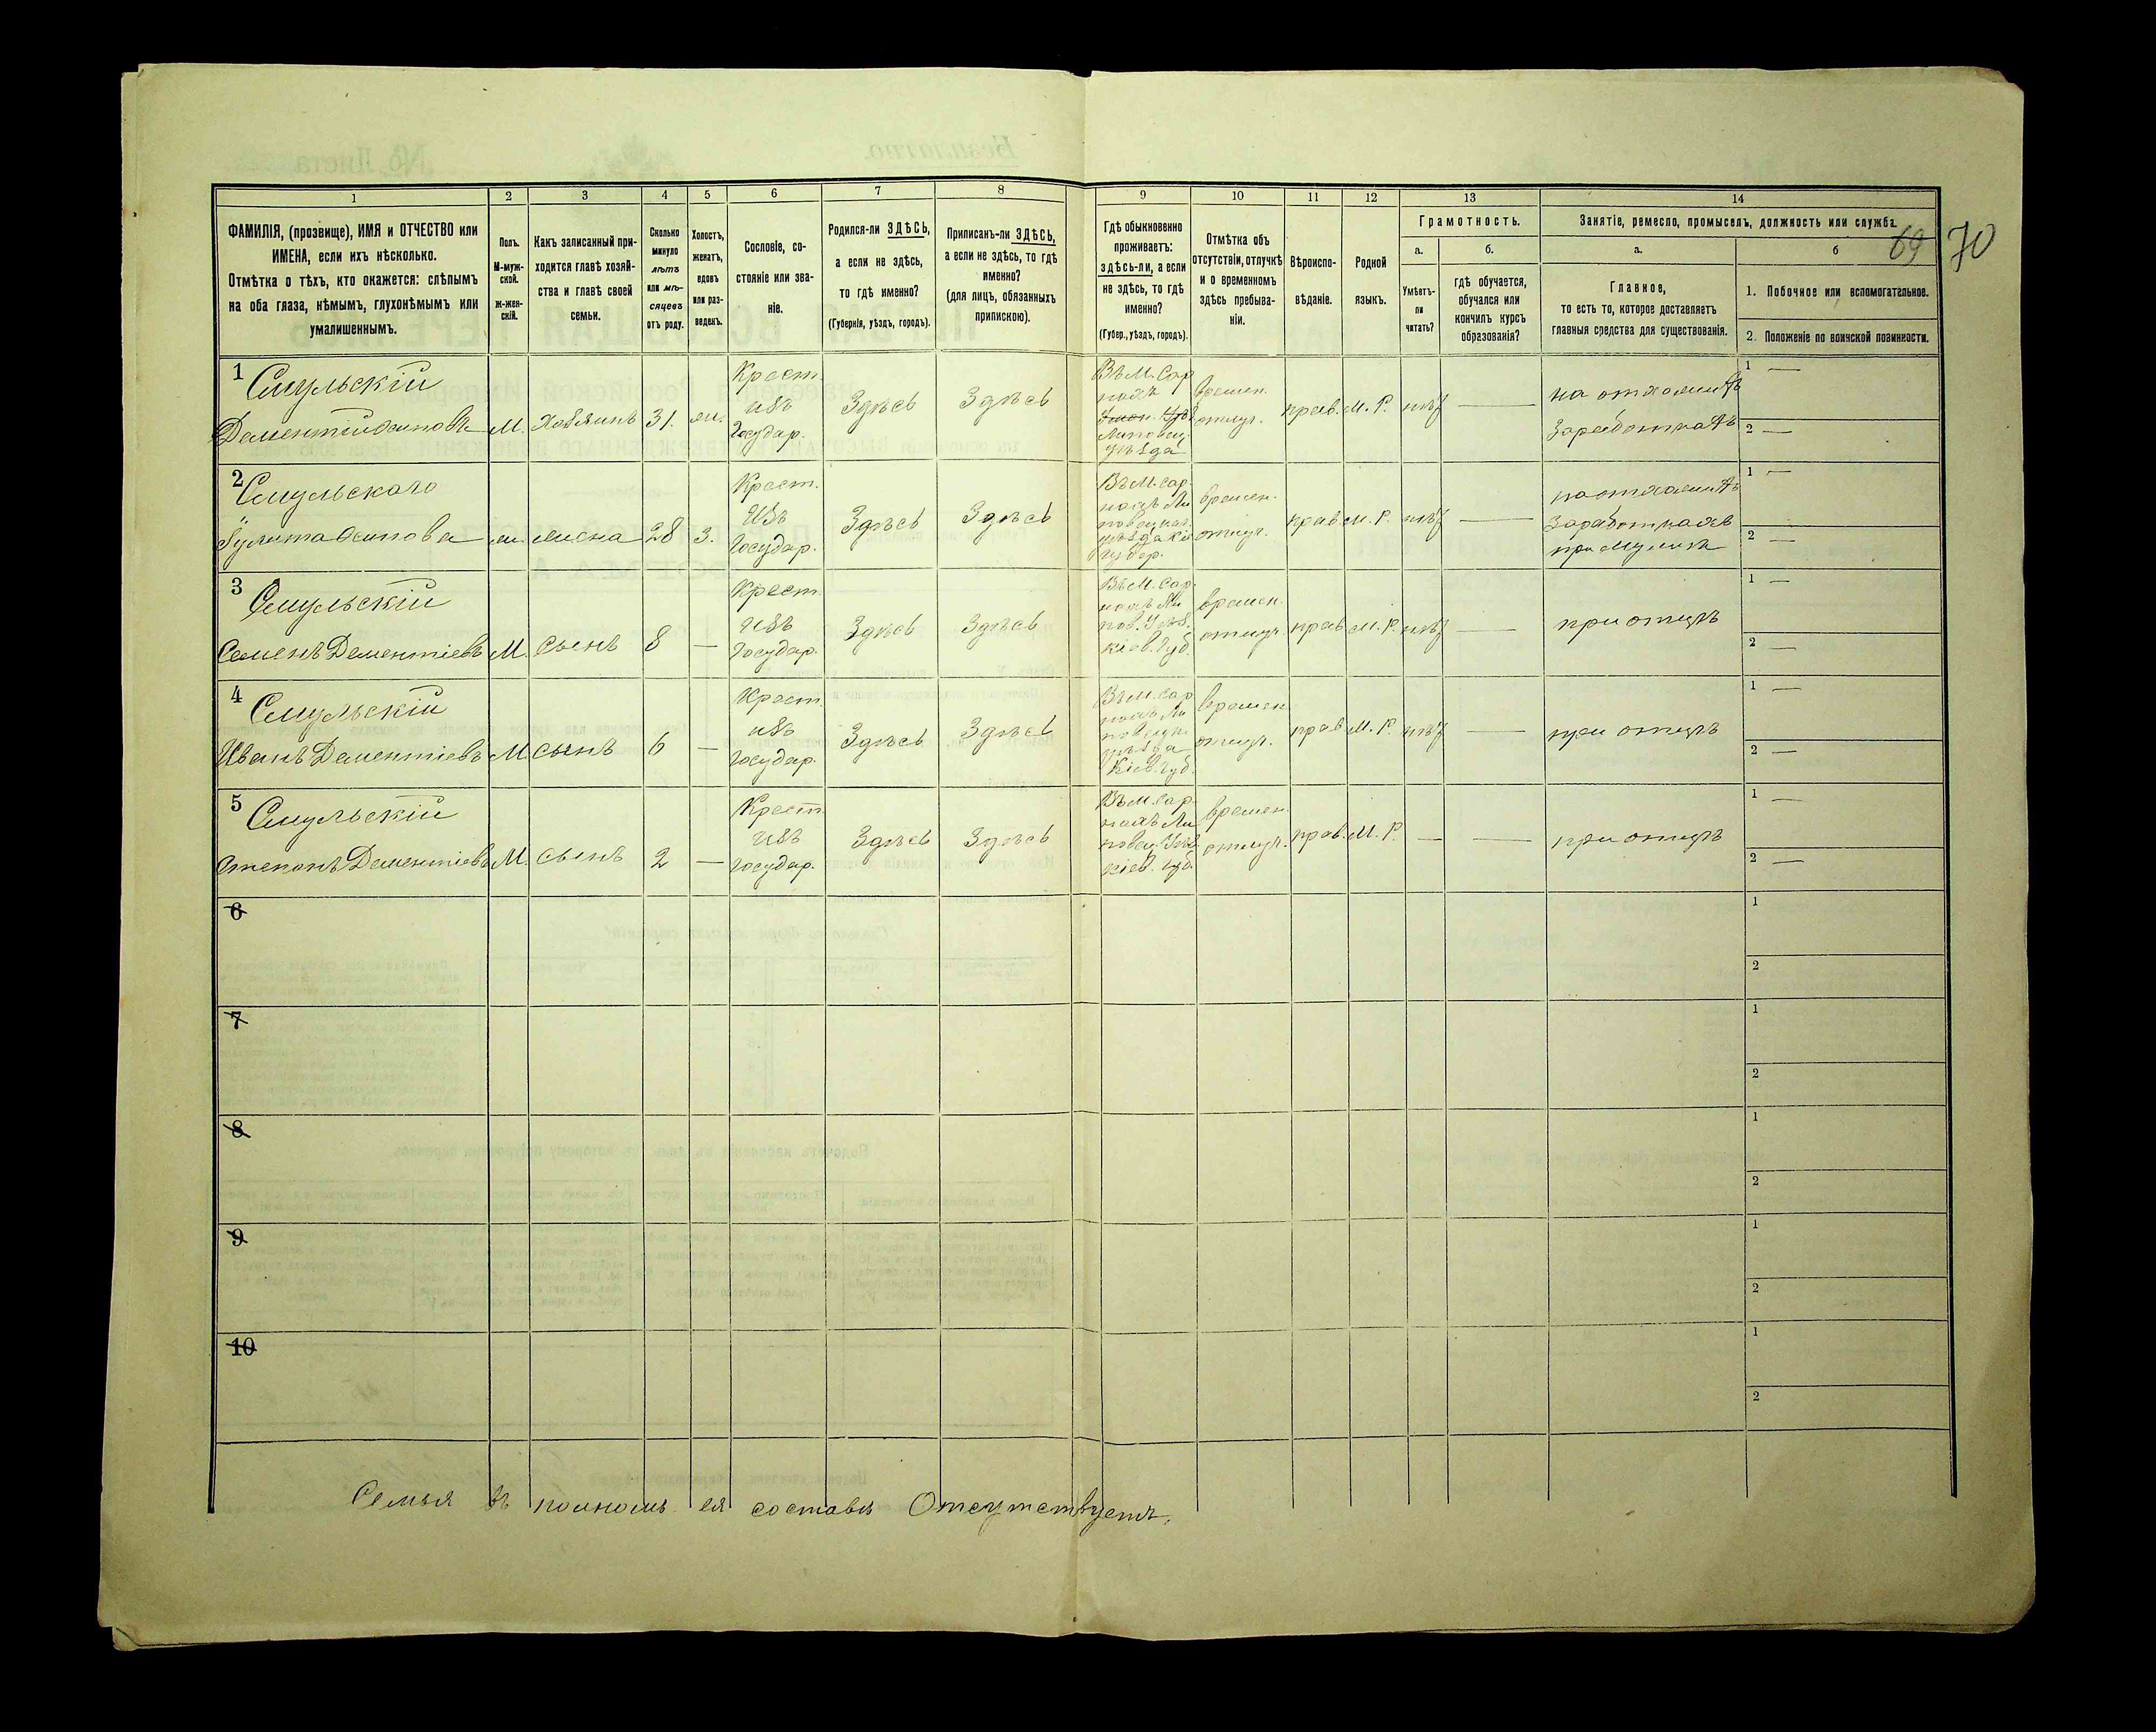 1
2
3
4
5
6
7
8
9
10
11
12
13
14
ФАМИЛІЯ, (прозвище), ИМЯ и ОТЧЕСТВО или
ИМЕНА, если ихъ нѣсколько.
Отмѣтка о тѣхъ, кто окажется: слѣпымъ
на оба глаза, нѣмымъ, глухонѣмымъ или
умалишеннымъ.
Полъ.
М-муж-
ской.
Ж-жен-
скій.
Какъ записанный при-
ходится главѣ хозяй-
ства и главѣ своей
семьи.
Сколько
минуло
лѣтъ
или мѣ-
сяцевъ
отъ роду.
Холостъ,
женатъ,
вдовъ
или раз-
веденъ.
Сословіе, со-
стояніе или зва-
ніе.
Родился-ли ЗДѢСЬ,
а если не здѣсь,
то гдѣ именно?
(Губернія, уѣздъ, городъ).
Приписанъ-ли ЗДѢСЬ,
а если не здѣсь, то гдѣ
именно?
(для лицъ, обязанныхъ
припискою).
Гдѣ обыкновенно
проживаетъ:
здѣсь-ли, а если
не здѣсь, то гдѣ
именно?
(Губер., уѣздъ, городъ).
Отмѣтка объ
отсутствіи, отлучкѣ
и о временномъ
здѣсь пребыва-
ніи.
Вѣроиспо-
вѣданіе.
Родной
языкъ.
Грамотность.
а.
Умѣетъ-
ли
читать?
б.
гдѣ обучается,
обучался или
кончилъ курсъ
образованія?
Занятіе, ремесло, промыселъ, должность или служба.
а.
Главное,
то есть то, которое доставляетъ
главныя средства для существованія.
б
1. Побочное или вспомогательное.
2. Положеніе по воинской повинности.
69 70
1 Смульскій
Дементій Осиповъ
М. Хозяинъ 31. жен.
Крест.
изъ
Государ.
Здѣсь Здѣсь
Въ М. Сар
нахъ
Липовец.
уѣзда
времен.
отлуч.
прав. М. Р. нѣт —
на отхожихъ
Заработкахъ
1 —
2 —
2 Смульскаго
Осипова
ж. жена 28 З.
Крест.
Изъ
Государ.
Здѣсь Здѣсь
Въ М. Сар.
нахъ Ли
повецкаго
уѣзда Кі
губер.
времен.
отлуч.
прав. М. Р. нѣт —
на отхожихъ
Заработкахъ
при Мужѣ
1 —
2 —
3 Смульскій
Семенъ Дементіевъ
М. Сынъ 8 —
Крест.
изъ
Государ.
Здѣсь Здѣсь
Въ М. Сар.
нахъ Ли
пов. Уѣз.
Кіев. Губ.
времен.
отлуч.
прав. М. Р. нѣт —
при отцѣ
1 —
2 —
4 Смульскій
Иванъ Дементіевъ
М. Сынъ 6 —
Крест.
изъ
Государ.
Здѣсь Здѣсь
Въ М. Сар
нахъ Ли
повецк.
уѣзда
Кіев. Губ.
времен.
отлуч.
прав. М. Р. нѣт —
при отцѣ
1 —
2 —
5 Смульскій
Степанъ Дементіевъ
М. Сынъ 2 —
Крест.
изъ
Государ.
Здѣсь Здѣсь
Въ М. Сар.
нахъ Ли
повец. Уѣз.
Кіев. губ.
времен.
отлуч.
прав. М. Р. — —
при отцѣ
1 —
2 —
6
1
2
7
1
2
8
1
2
9
1
2
10
1
2
Семья въ полномъ ея составѣ Отсутствуетъ.